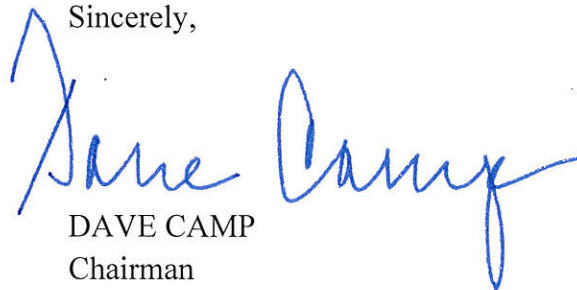 Sincerely,
Dave Camp
DAVE CAMP
Chairman